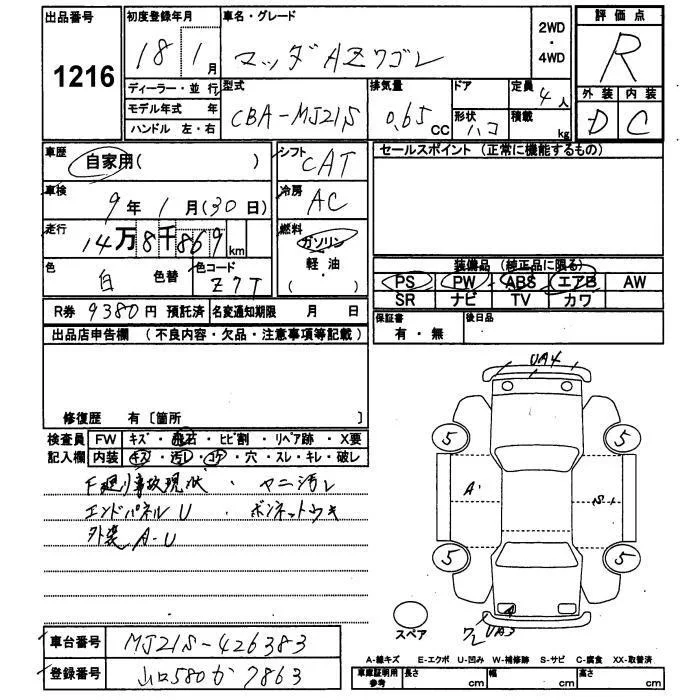 出品番号 初度登録年月 車名・グレード 2WD・4WD 評価点
1216 18年 1月 マツダAZワゴン R
ディーラー・並行 型式 排気量 ドア 定員 4人 外装 内装
モデル年式 年 CBA-MJ21S 0.65 CC 形状 ハコ 積載 kg D C
ハンドル 左・右
車歴 自家用( ) シフト CAT セールスポイント (正常に機能するもの)
車検 9年 1月(30日) 冷房 AC
走行 14万8千869km 燃料 ガソリン 軽・油 ( )
色 白 色替 色コード Z7T 装備品 (純正品に限る)
PS PW ABS エアB AW
SR ナビ TV カワ
R券 9380円 預託済 名変通知期限 月 日 保証書 有・無 後日品
出品店申告欄 (不良内容・欠品・注意事項等記載)
修復歴 有〔箇所 〕
検査員 FW キズ・飛石・ヒビ割・リペア跡・X要
記入欄 内装 キズ・汚レ・コゲ・穴・スレ・キレ・破レ
F廻り事故現状・マニ汚レ
エンドパネルU・ボンネットウキ
外装A-U
UA4
5 5
A' S-1
5 5
A
UA3
スペア
車台番号 MJ21S-426383
登録番号 山口580か7863
A-線キズ E-エクボ U-凹み W-補修跡 S-サビ C-腐食 XX-取替済
車庫証明用参考 長さ cm 幅 cm 高さ cm